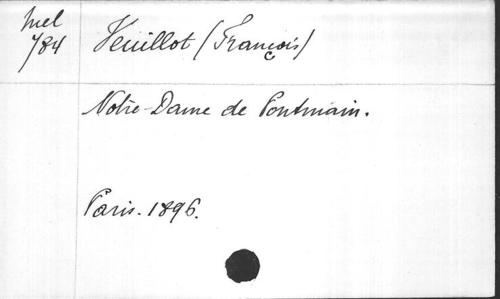 Mel
784
Veuillot (François)
Notre-Dame de Pontmain.
Paris. 1896.